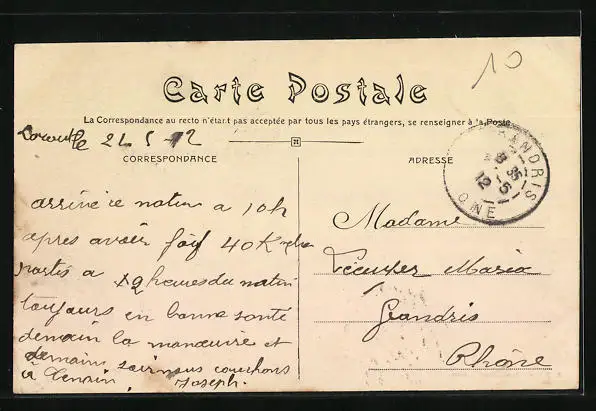 10
Carte Postale
La Correspondance au recto n'étant pas acceptée par tous les pays étrangers, se renseigner à la Poste
24 5 12
CORRESPONDANCE
ADRESSE
GRANDRIS
RHONE
arrivé ce matin a 10h
apres avoir fait 40 K
partis a heures du matin
toujours en bonne santé
demain la manœuvre et
demain soir nous couchons
à
Joseph.
Madame
Maria
Grandris
Rhône